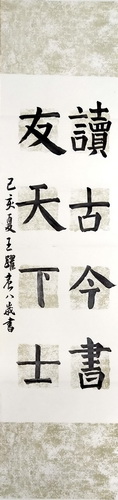 讀古今書
友天下士
己亥夏王躍君八歲書